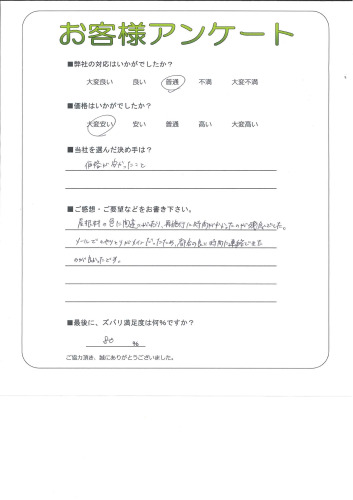 お客様アンケート
■弊社の対応はいかがでしたか?
大変良い 良い 普通 不満 大変不満
■価格はいかがでしたか?
大変安い 安い 普通 高い 大変高い
■当社を選んだ決め手は?
価格が安かったこと
■ご感想・ご要望などをお書き下さい。
屋根材の色に間違いがあり、再発行に時間がかかったのが残念でした。
メールでのやりとりがメインだったため、都合の良い時間に連絡できた
のが良かったです。
■最後に、ズバリ満足度は何%ですか?
80 %
ご協力頂き、誠にありがとうございました。